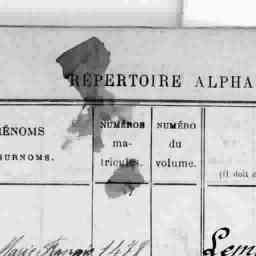 RÉPERTOIRE ALPHA
ÉNOMS
SURNOMS.
NUMÉROS
ma-
tricules.
NUMÉRO
du
volume.
(Il doit
1478
Lem